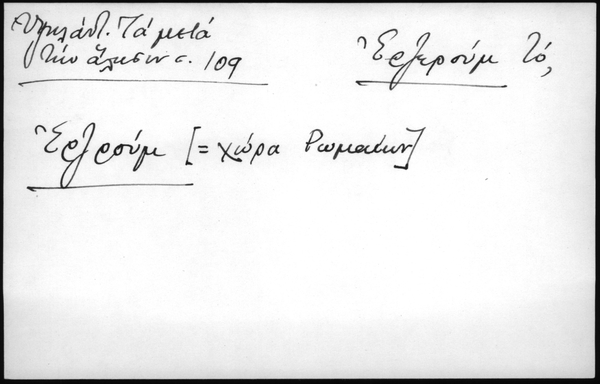 Ὑψηλάντ. Τά μετά
τήν ἅλωσιν σ. 109
Ἐρζερούμ τό,
Ἐρζρούμ [= χώρα Ρωμαίων]